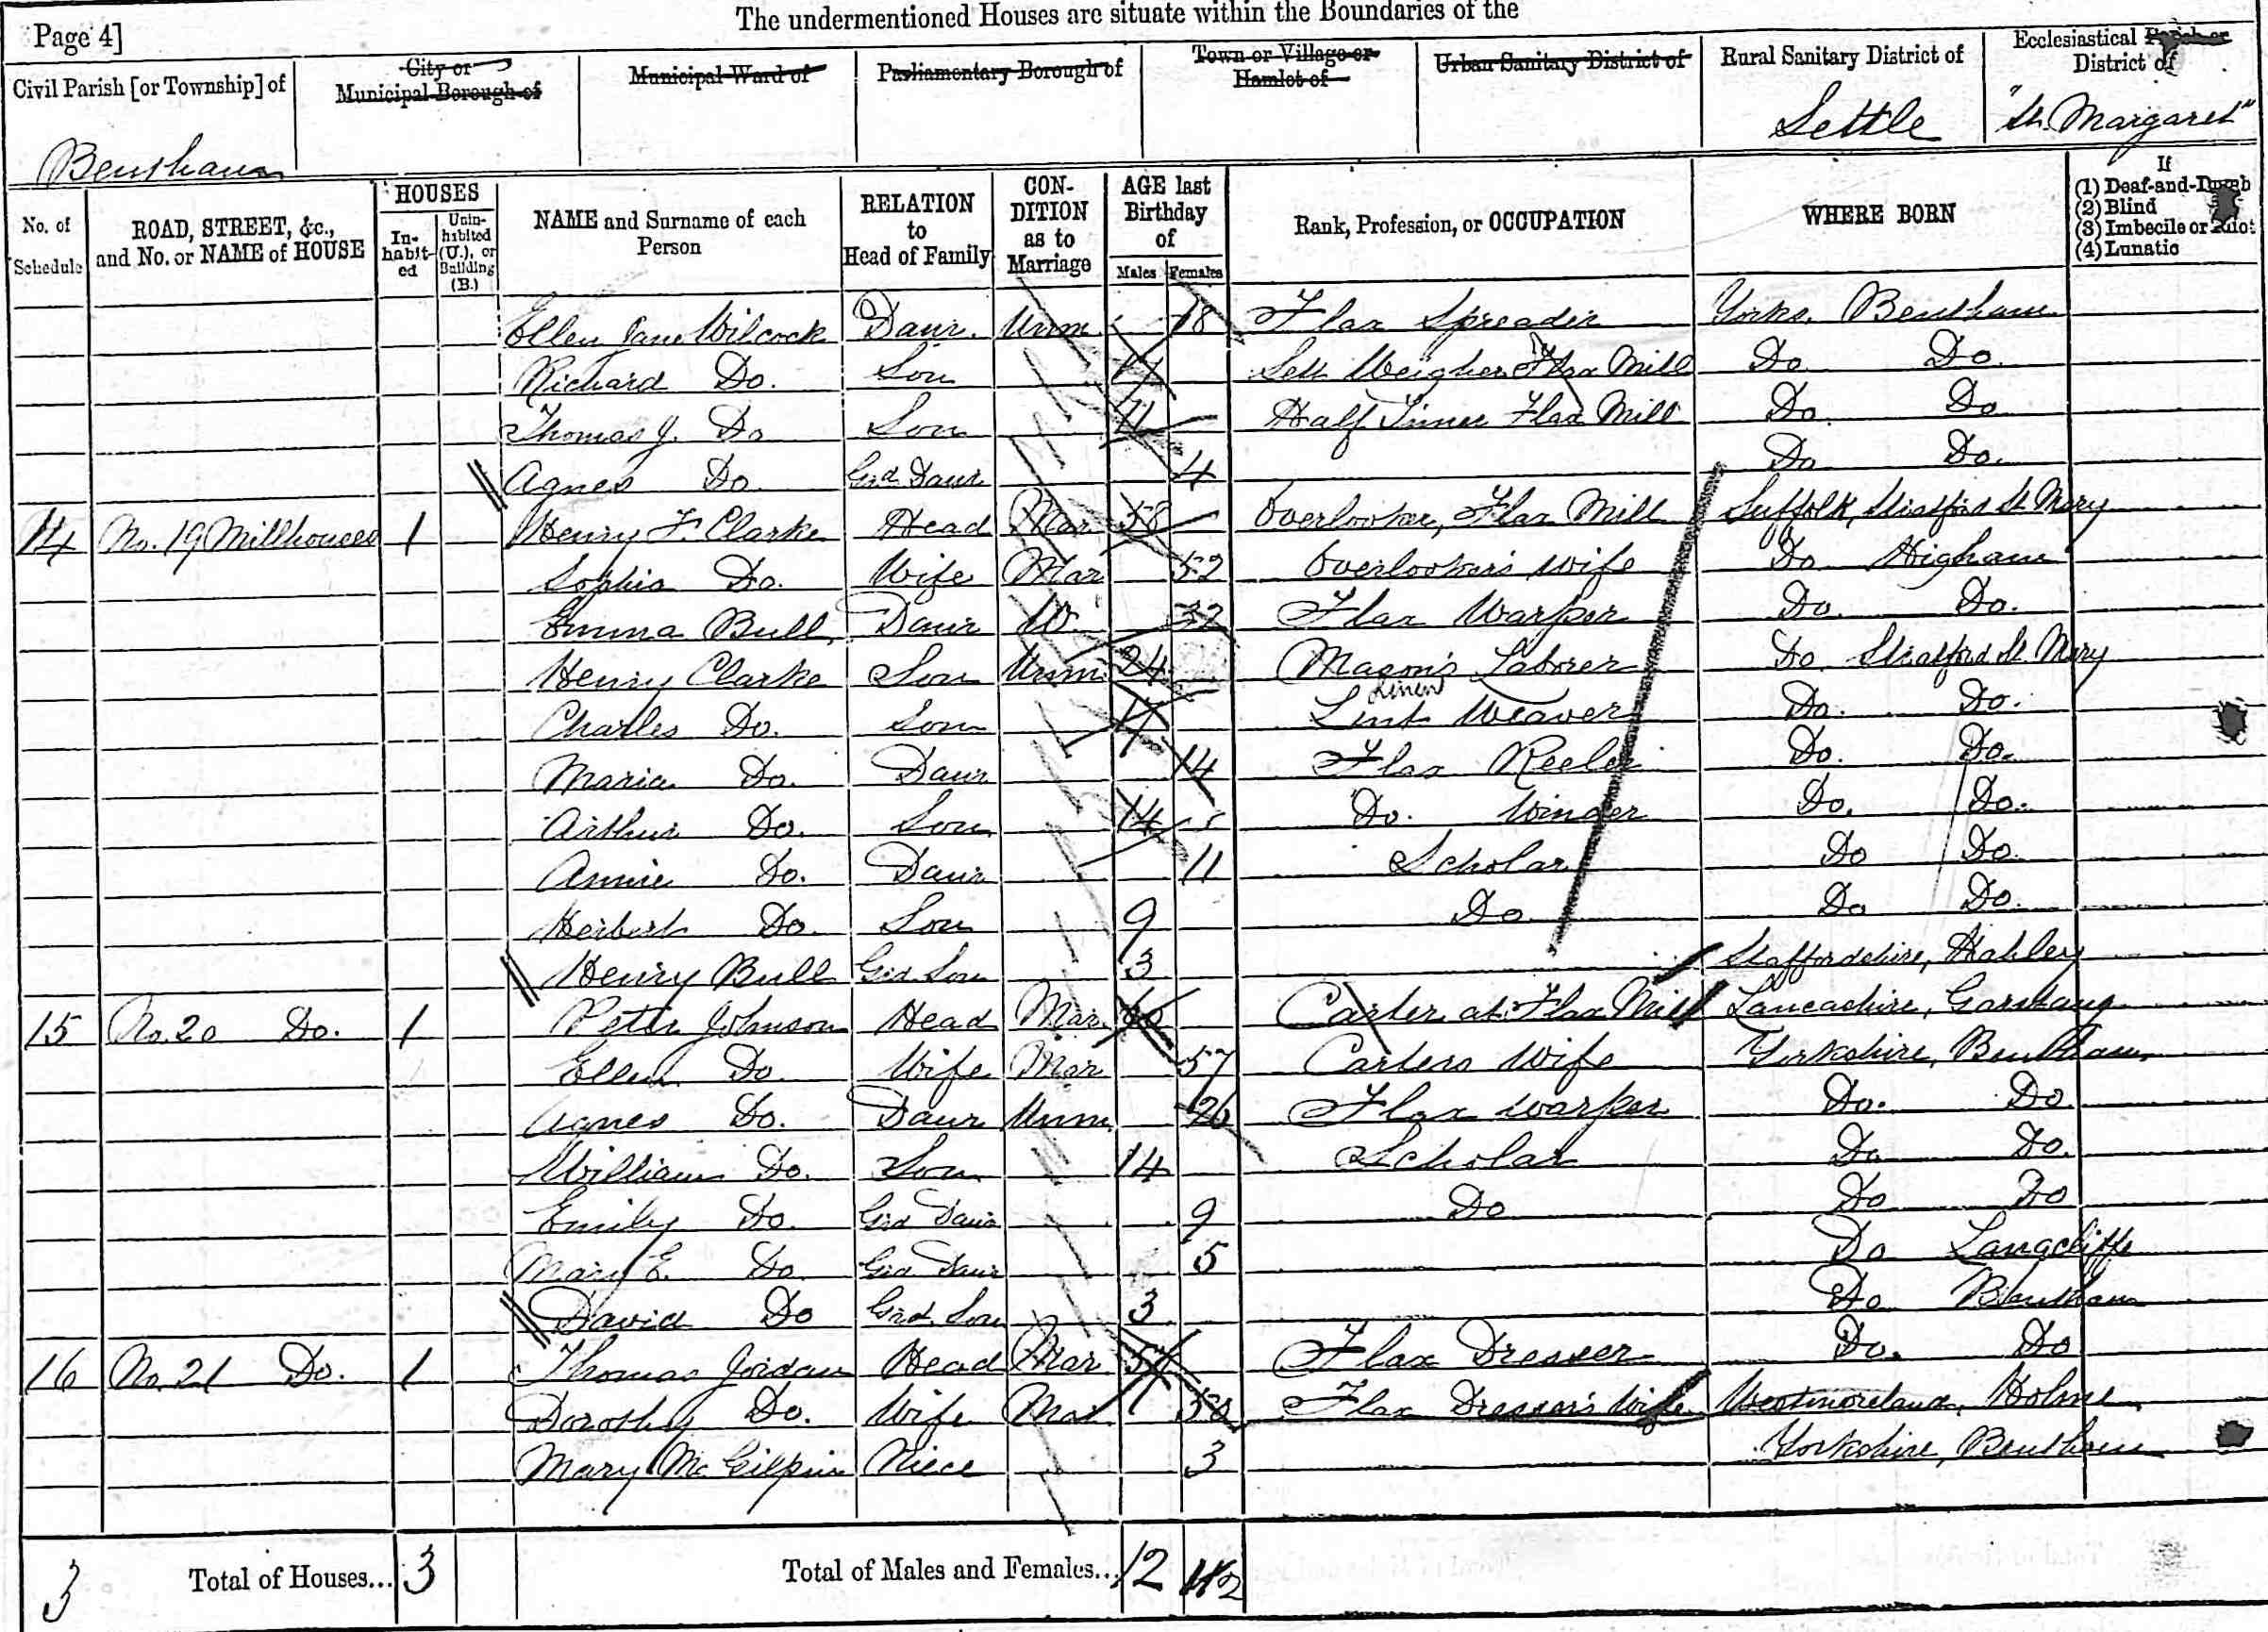 The undermentioned Houses are situate within the Boundaries of the
Page 4]
Civil Parish [or Township] of
City or Municipal Borough of
Municipal Ward of
Parliamentary Borough of
Town or Village or Hamlet of
Urban Sanitary District of
Rural Sanitary District of
Ecclesiastical Parish or District of
Bentham
Settle
"St. Margaret"
No. of Schedule
ROAD, STREET, &c., and No. or NAME of HOUSE
HOUSES
In-habit-ed
Unin-habited (U.), or Building (B.)
NAME and Surname of each Person
RELATION to Head of Family
CON-DITION as to Marriage
AGE last Birthday of
Males
Females
Rank, Profession, or OCCUPATION
WHERE BORN
If
(1) Deaf-and-Dumb
(2) Blind
(3) Imbecile or Idiot
(4) Lunatic
Ellen Jane Wilcock Daur. Unm. 18 Flax Spreader Yorks. Bentham
Richard Do. Son Sett Weigher Flax Mill Do Do
Thomas J. Do Son 11 Half Timer Flax Mill Do Do
Agnes Do Grd Daur 4 Do Do.
14 No. 19 Millhouses 1 Henry F. Clarke Head Mar 58 Overlooker, Flax Mill Suffolk, Stratford St. Mary
Sophia Do. Wife Mar 52 Overlooker's wife Do Higham
Emma Bull Daur W. 32 Flax Warper Do. Do.
Henry Clarke Son Unm. 24 Mason's Laborer Do Stratford St. Mary
Charles Do. Son Lint Linen Weaver Do. Do.
Maria Do. Daur 14 Flax Reeler Do. Do.
Arthur Do. Son 14 Do. Winder Do. Do.
Annie Do. Daur 11 Scholar Do Do
Herbert Do. Son 9 Do Do Do
Henry Bull Grd Son 3 Staffordshire,
15 No. 20 Do. 1 Peter Johnson Head Mar. Carter at Flax Mill Lancashire, Garstang
Ellen Do Wife Mar 57 Carters Wife Yorkshire, Bentham
Agnes Do. Daur Unm. 26 Flax warper Do. Do
William Do. Son 14 Scholar Do Do.
Emily Do. Grd Daur 9 Do Do Do
Mary E. Do. Grd Daur 5 Do Langcliffe
David Do Grd Son 3 Do Bentham
16 No. 21 Do. 1 Thomas Jordan Head Mar Flax Dresser Do. Do
Dorothy Do. Wife Mar Flax Dresser's Wife Westmoreland, Holme
Mary McGilpin Niece 3 Yorkshire, Bentham
3 Total of Houses... 3 Total of Males and Females... 12 12